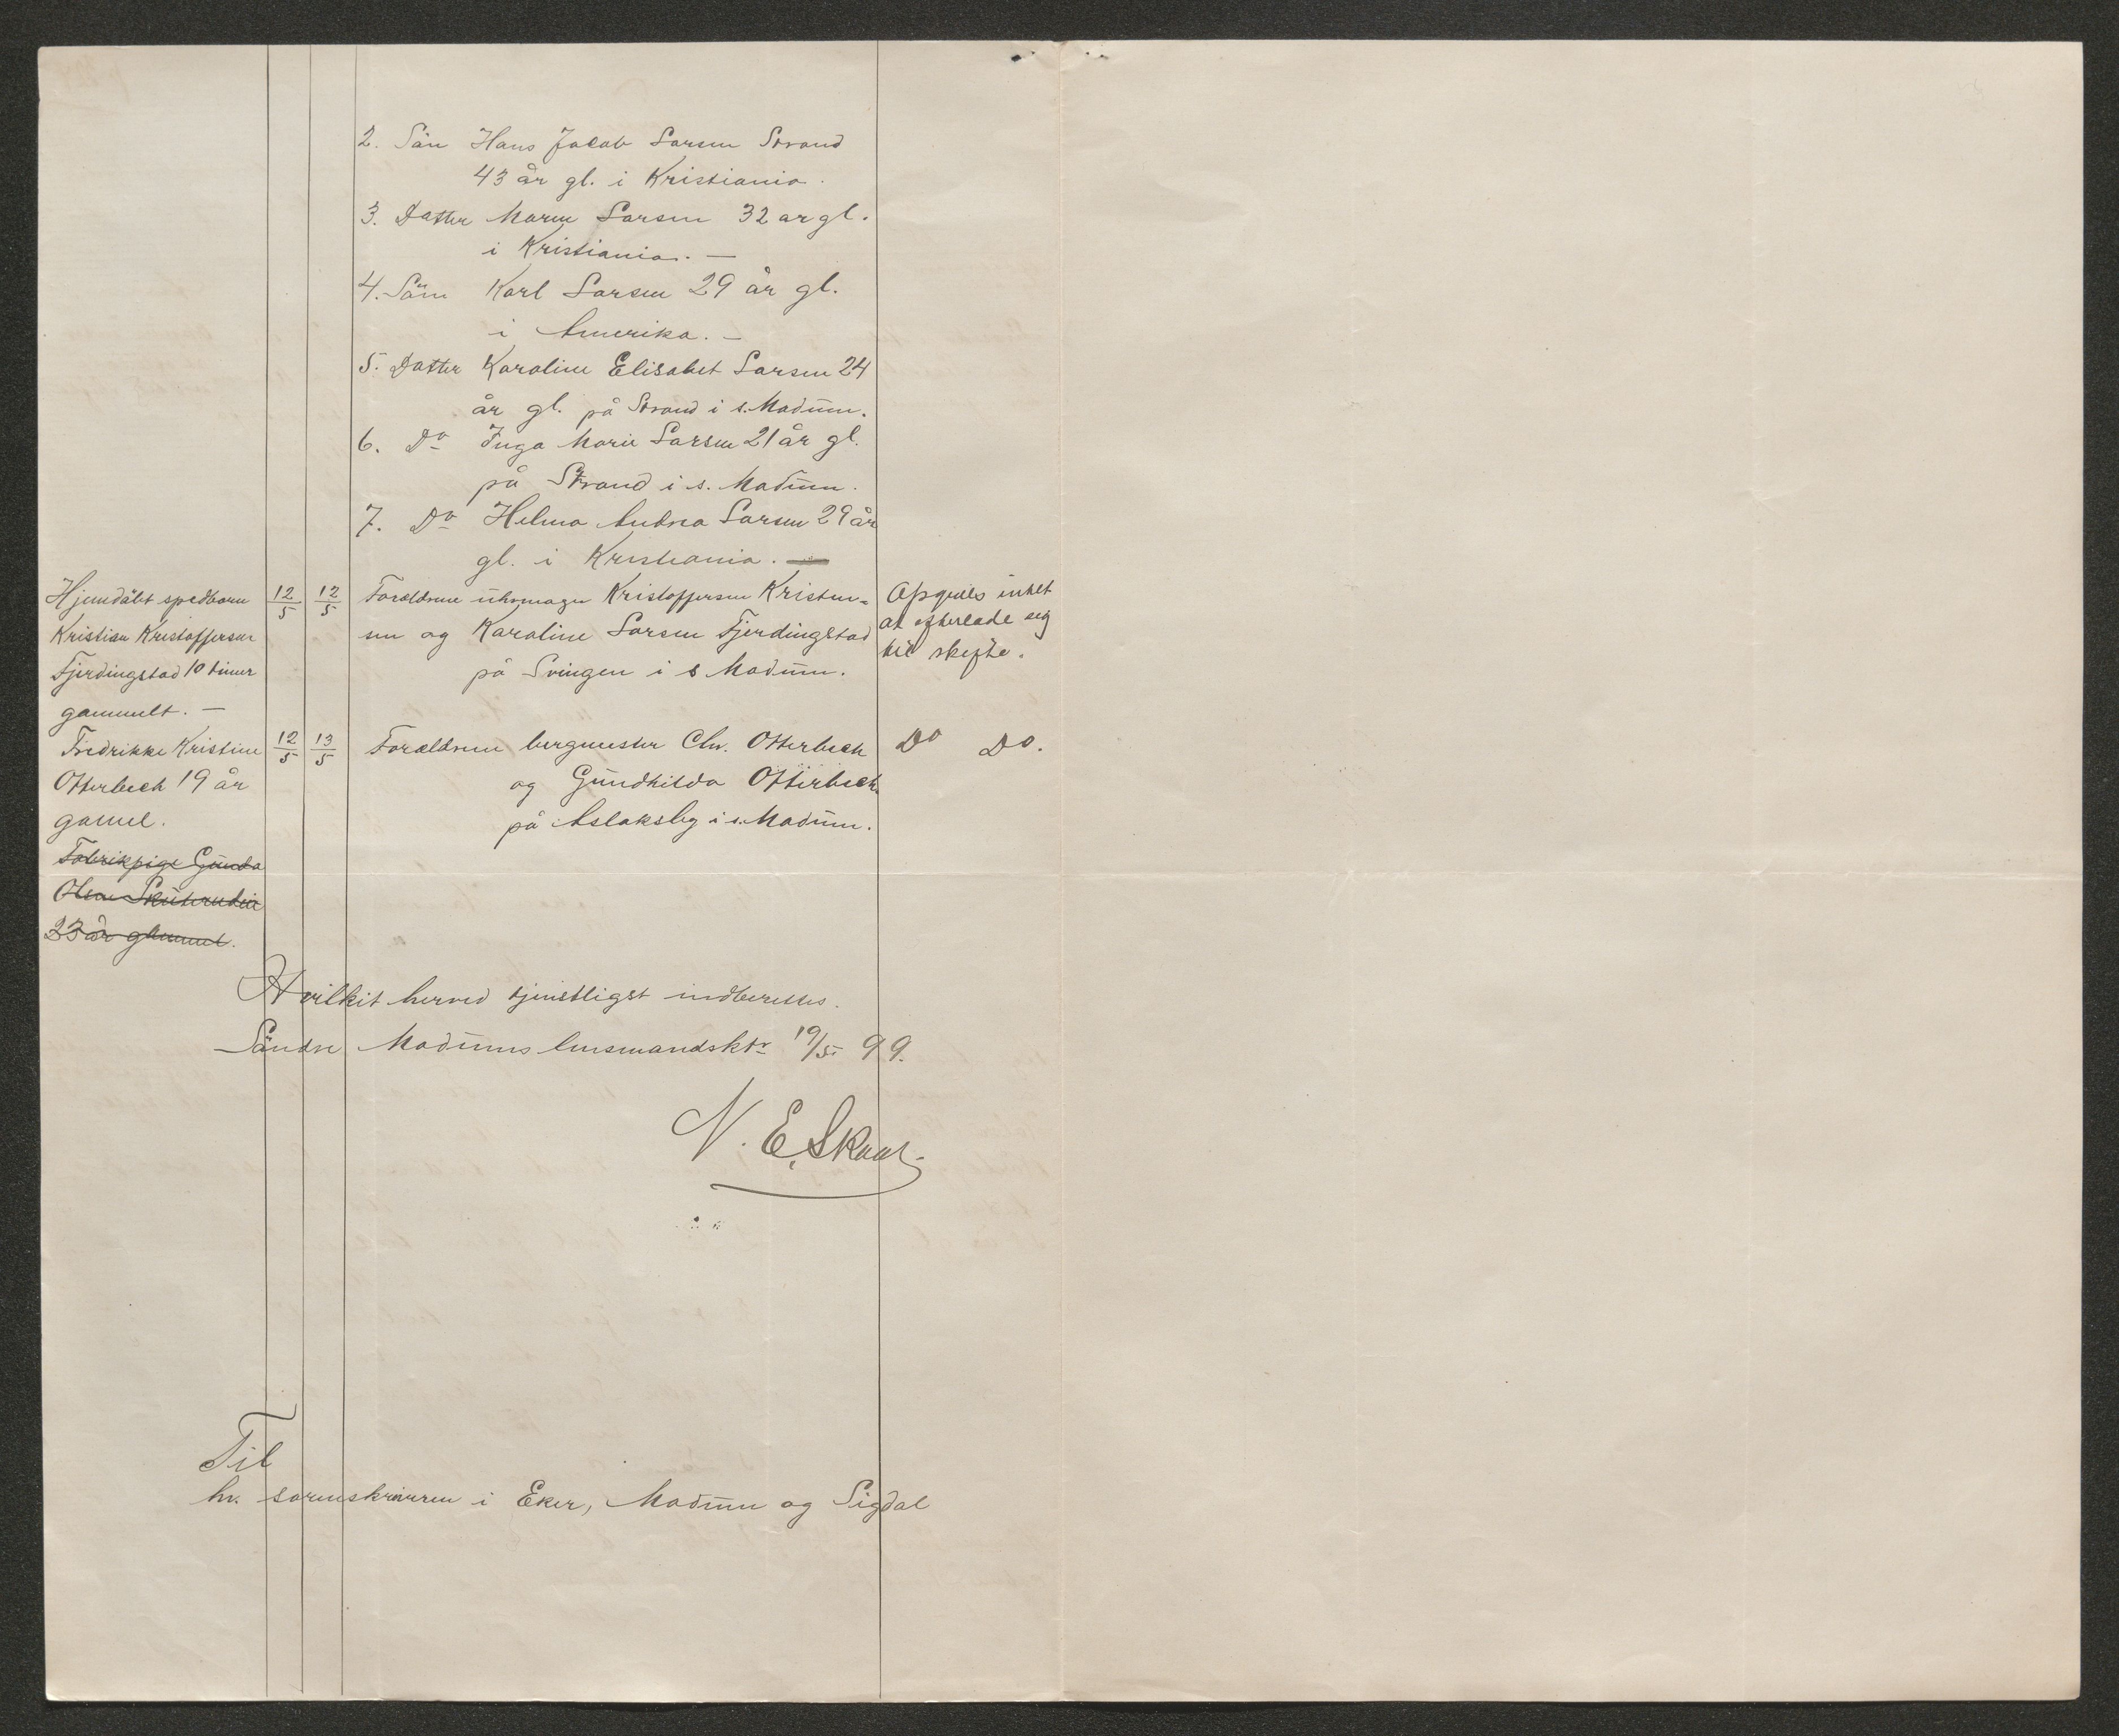 2. Sön Hans Jacob Larsen Strand
43 år gl. i Kristiania.
3. Datter Maren Larsen 32 ar gl.
i Kristiania. —
4. Sön Karl Larsen 29 år gl.
i Amerika. —
5. Datter Karoline Elisabet Larsen 24
år gl. på Strand i s. Modum.
6. Do Inga Marie Larsen 21 år gl.
på Strand i s. Modum.
7. Do Helma Andrea Larsen 29 år
gl. i Kristiania. —
Hjemdöbt spedbarn
Kristian Kristoffersen
Fjerdingstad 10 timer
gammelt. —
12/5 12/5
Forældrene uhrmager Kristoffersen Kristen-
sen og Karoline Larsen Fjerdingstad
på Svingen i s Modum.
Opgives intet
at efterlade sig
til skifte.
Fredrikke Kristine
Otterbech 19 år
gamel.
12/5 13/5
Forældrene bergmester Chr. Otterbech
og Gundhilda Otterbech
på Aslaksby i s. Modum.
Do Do.
Fabrikpige Gunda
Olsen
23 år gammel.
Hvilket herved tjenstligst indberettes.
Söndre Modums lensmandsktr 19/5 99.
N. E. Skaar.
Til
hr. sorenskriveren i Eker, Modum og Sigdal